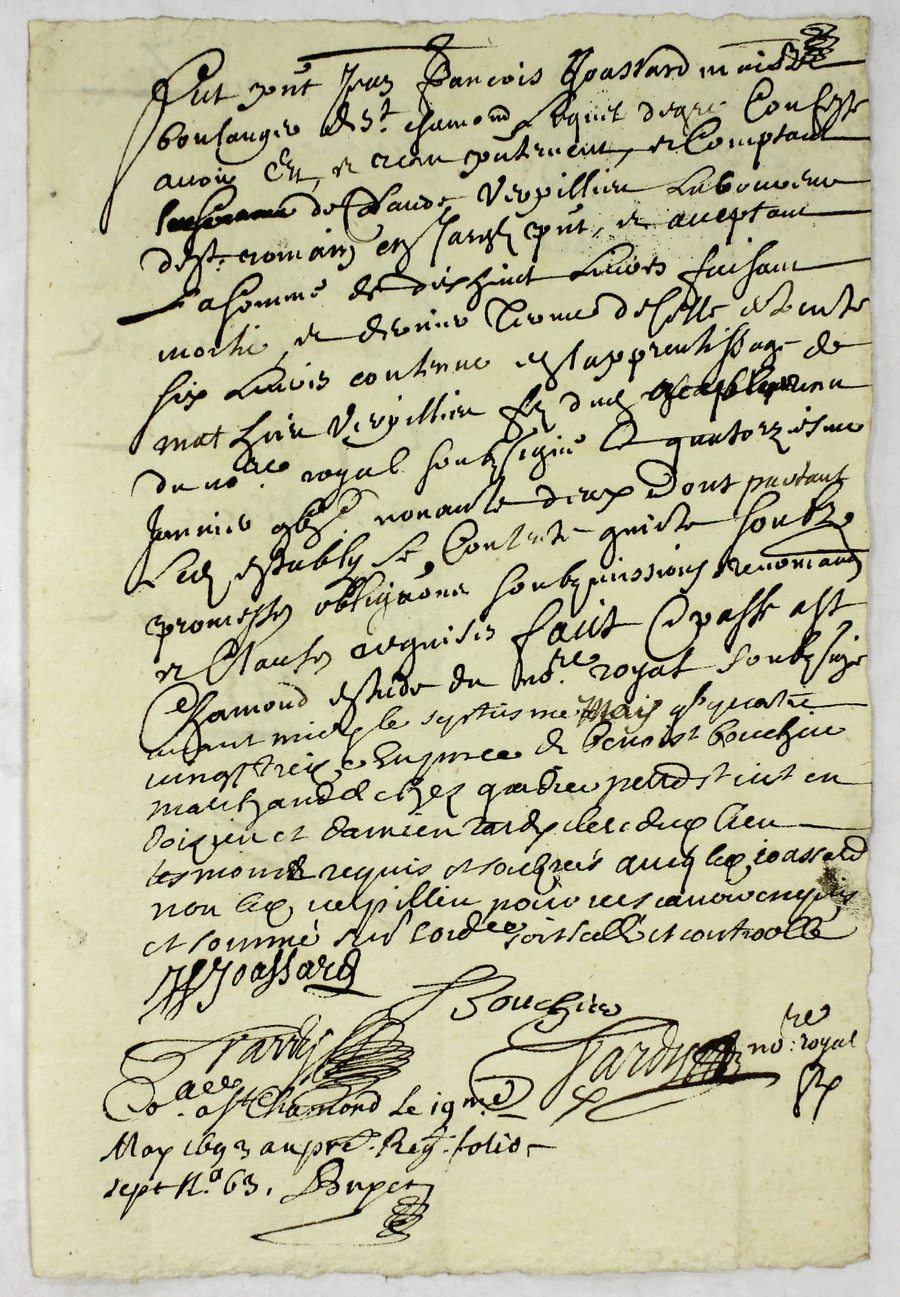 Fut pnt Jean francois Joassard maistre
boulanger de St chamond lequel de gre Confesse
avoir Eu, et receu contement, et Comptant
de Claude Verpillieu Laboureur
de St romain en Jarestz pnt, et aceptant
La somme de dix huict Livres faisant
moitié et dernier Terme de celle de trente
six Livres contenue en l'apprentissage de
mathieu Verpillieu fz dud receu
du nore royal soubzsigné Le quatorziesme
Janvier nonante deux Dont partant
Led estably Se Contente quicte soubz
promesses obligaons soubzmissions renonciaons
et Clauses requises faict Et passé a St
Chamond estude du nore royal Soubzsigné
avant midy le septiesme May gbc quatre
vingtz treize En pnce de benoist bouchier
marchand de chez St iust en
doizieu et damien tardy clerc dud lieu
tesmoins requis et soubznes avec led Joassard
non led verpillieu pour ne scavoir enquis
et sommé sera lordre scellé et controollé
JF Joassard
Bouchier
Tardy
Tardy nore: royal
Coalle a St Chamond Le 19me
May 1693 au pre. Reg. folio
sept No 63. Dupet